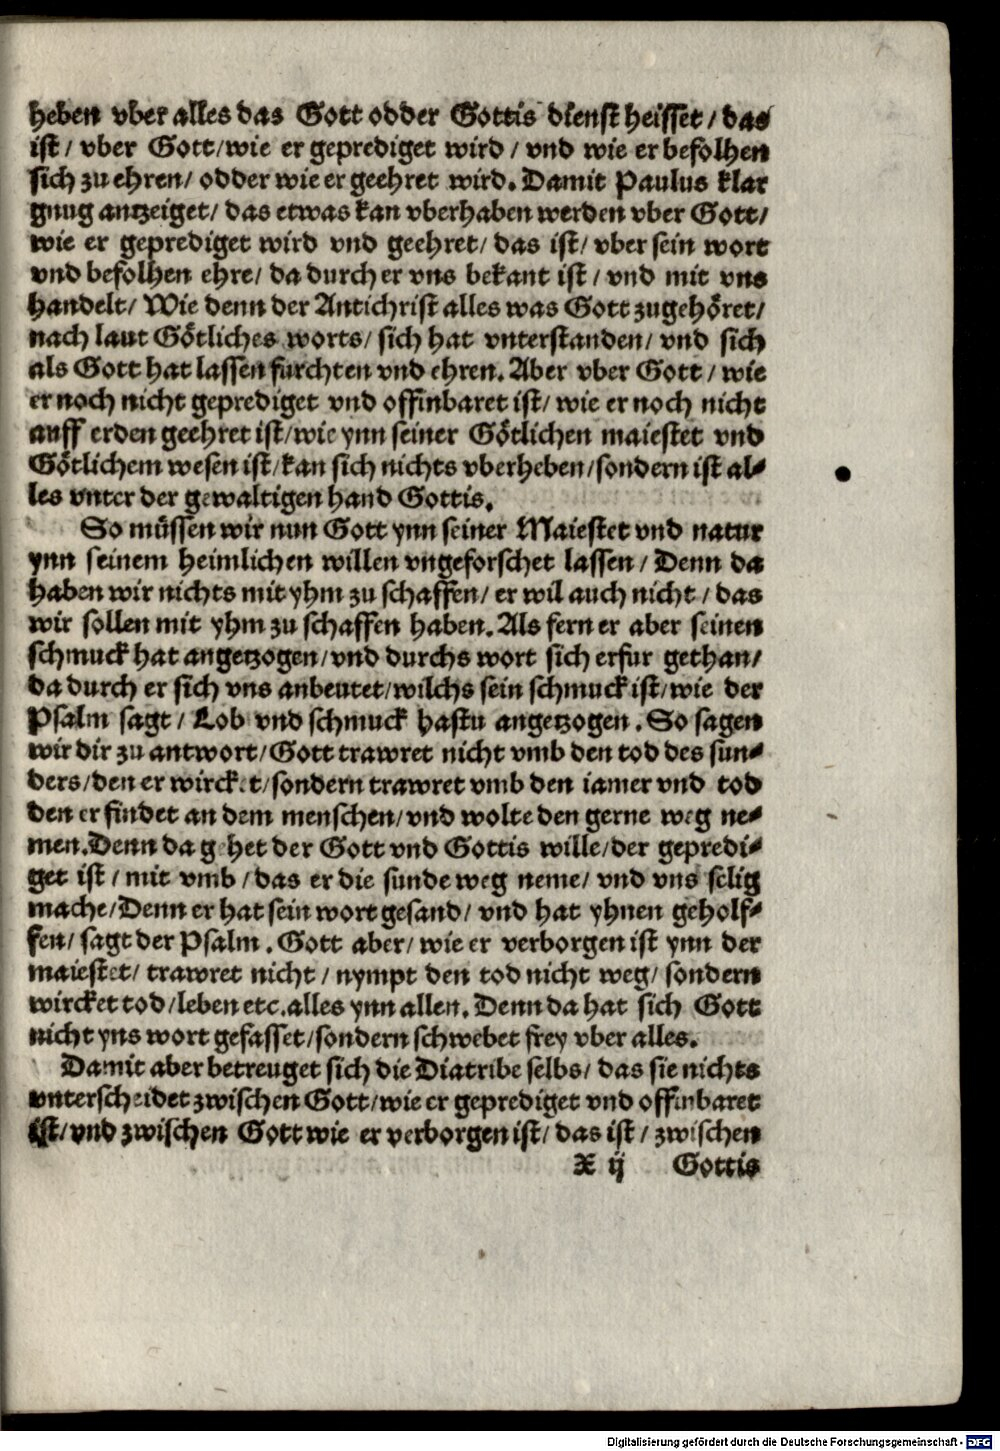 heben vber alles das Gott odder Gottis dienst heisset / das
ist / vber Gott / wie er geprediget wird / vnd wie er befolhen
sich zu ehren / odder wie er geehret wird. Damit Paulus klar
gnug antzeiget / das etwas kan vberhaben werden vber Gott /
wie er geprediget wird vnd geehret / das ist / vber sein wort
vnd befolhen ehre / da durch er vns bekant ist / vnd mit vns
handelt / Wie denn der Antichrist alles was Gott zugehöret /
nach laut Götliches worts / sich hat vnterstanden / vnd sich
als Gott hat lassen furchten vnd ehren. Aber vber Gott / wie
er noch nicht geprediget vnd offinbaret ist / wie er noch nicht
auff erden geehret ist / wie ynn seiner Götlichen maiestet vnd
Götlichem wesen ist / kan sich nichts vberheben / sondern ist al⸗
les vnter der gewaltigen hand Gottis.
So müssen wir nun Gott ynn seiner Maiestet vnd natur
ynn seinem heimlichen willen vngeforschet lassen / Denn da
haben wir nichts mit yhm zu schaffen / er wil auch nicht / das
wir sollen mit yhm zu schaffen haben. Als fern er aber seinen
schmuck hat angetzogen / vnd durchs wort sich erfur gethan /
da durch er sich vns anbeutet / wilchs sein schmuck ist / wie der
Psalm sagt / Lob vnd schmuck hastu angetzogen. So sagen
wir dir zu antwort / Gott trawret nicht vmb den tod des sun⸗
ders / den er wircket / sondern trawret vmb den iamer vnd tod
den er findet an dem menschen / vnd wolte den gerne weg ne⸗
men. Denn da gehet der Gott vnd Gottis wille / der gepredi⸗
get ist / mit vmb / das er die sunde weg neme / vnd vns selig
mache / Denn er hat sein wort gesand / vnd hat yhnen geholf⸗
fen / sagt der Psalm. Gott aber / wie er verborgen ist ynn der
maiestet / trawret nicht / nympt den tod nicht weg / sondern
wircket tod / leben etc. alles ynn allen. Denn da hat sich Gott
nicht yns wort gefasset / sondern schwebet frey vber alles.
Damit aber betreuget sich die Diatribe selbs / das sie nichts
vnterscheidet zwischen Gott / wie er geprediget vnd offinbaret
ist / vnd zwischen Gott wie er verborgen ist / das ist / zwischen
X ij Gottis
Digitalisierung gefördert durch die Deutsche Forschungsgemeinschaft - DFG